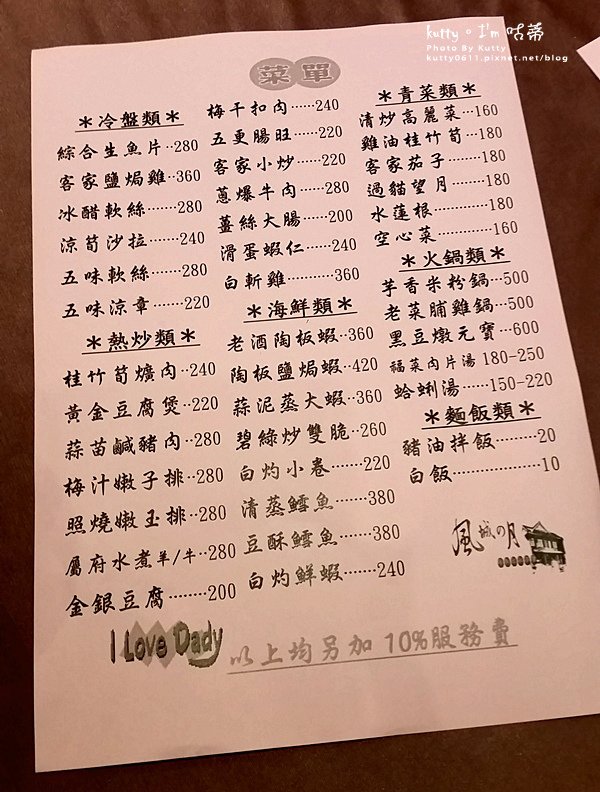 kutty。I'm 咕蒂
Photo By Kutty
kutty0611.pixnet.net/blog
菜單
＊冷盤類＊
綜合生魚片··280
客家鹽焗雞··360
冰醋軟絲·······280
涼筍沙拉·······240
五味軟絲·······280
五味涼章·······220
＊熱炒類＊
桂竹筍爌肉··240
黃金豆腐煲··220
蒜苗鹹豬肉··280
梅汁嫩子排··280
照燒嫩玉排··280
屬府水煮羊/牛··280
金銀豆腐········200
梅干扣肉······240
五更腸旺······220
客家小炒······220
蔥爆牛肉······280
薑絲大腸······200
滑蛋蝦仁······240
白斬雞·········360
＊海鮮類＊
老酒陶板蝦···360
陶板鹽焗蝦···420
蒜泥蒸大蝦···360
碧綠炒雙脆···260
白灼小卷·······220
清蒸鱈魚·······380
豆酥鱈魚·······380
白灼鮮蝦·······240
＊青菜類＊
清炒高麗菜···160
雞油桂竹筍···180
客家茄子·······180
過貓望月·······180
水蓮根·········180
空心菜·········160
＊火鍋類＊
芋香米粉鍋···500
老菜脯雞鍋···500
黑豆燉元寶···600
福菜肉片湯 180-250
蛤蜊湯······150-220
＊麵飯類＊
豬油拌飯·········20
白飯···················10
風城の月
I Love Dady
以上均另加 10%服務費